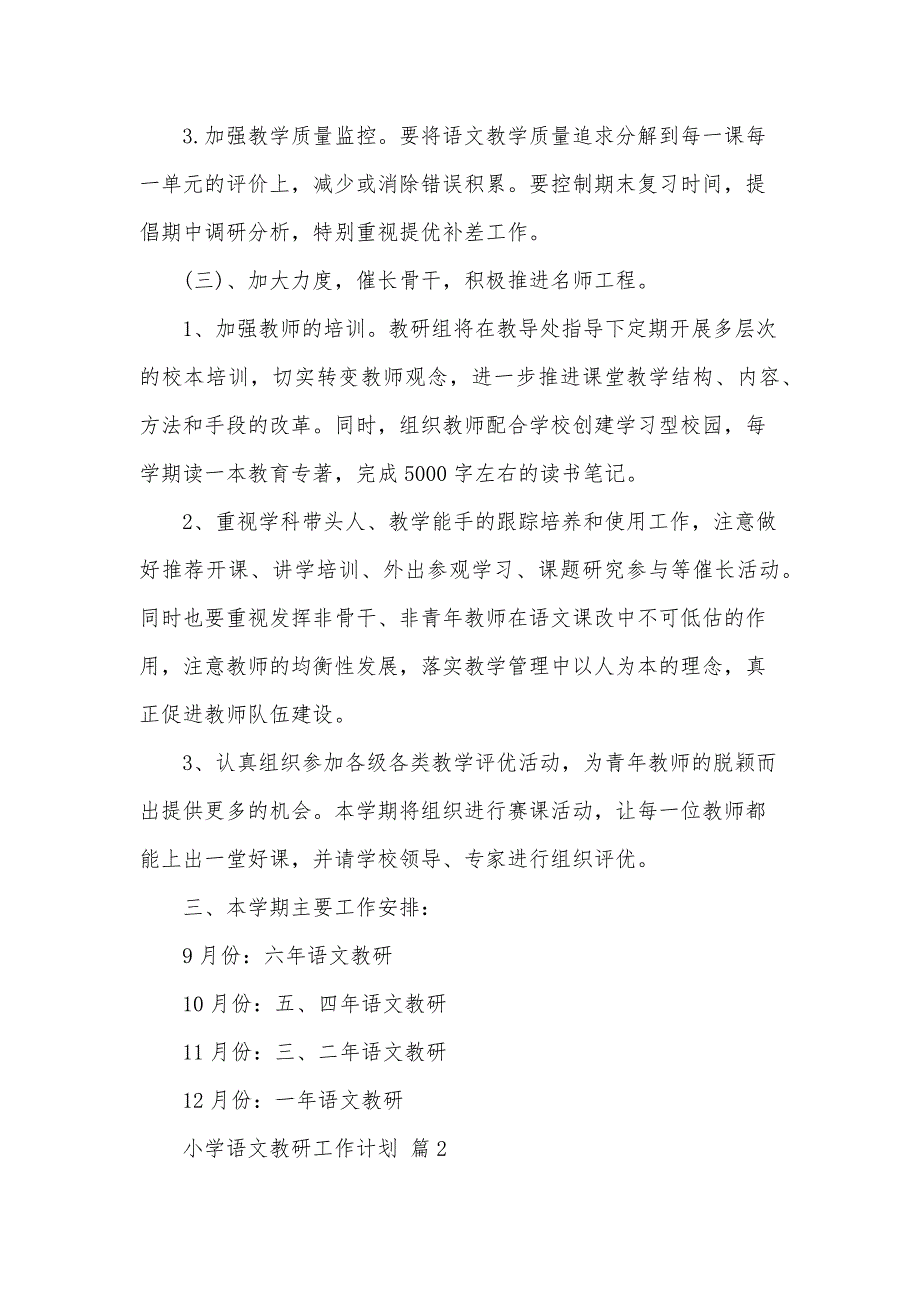 3.加强教学质量监控。要将语文教学质量追求分解到每一课每
一单元的评价上，减少或消除错误积累。要控制期末复习时间，提
倡期中调研分析，特别重视提优补差工作。
(三)、加大力度，催长骨干，积极推进名师工程。
1、加强教师的培训。教研组将在教导处指导下定期开展多层次
的校本培训，切实转变教师观念，进一步推进课堂教学结构、内容、
方法和手段的改革。同时，组织教师配合学校创建学习型校园，每
学期读一本教育专著，完成 5000 字左右的读书笔记。
2、重视学科带头人、教学能手的跟踪培养和使用工作，注意做
好推荐开课、讲学培训、外出参观学习、课题研究参与等催长活动。
同时也要重视发挥非骨干、非青年教师在语文课改中不可低估的作
用，注意教师的均衡性发展，落实教学管理中以人为本的理念，真
正促进教师队伍建设。
3、认真组织参加各级各类教学评优活动，为青年教师的脱颖而
出提供更多的机会。本学期将组织进行赛课活动，让每一位教师都
能上出一堂好课，并请学校领导、专家进行组织评优。
三、本学期主要工作安排：
9 月份：六年语文教研
10 月份：五、四年语文教研
11 月份：三、二年语文教研
12 月份：一年语文教研
小学语文教研工作计划 篇 2